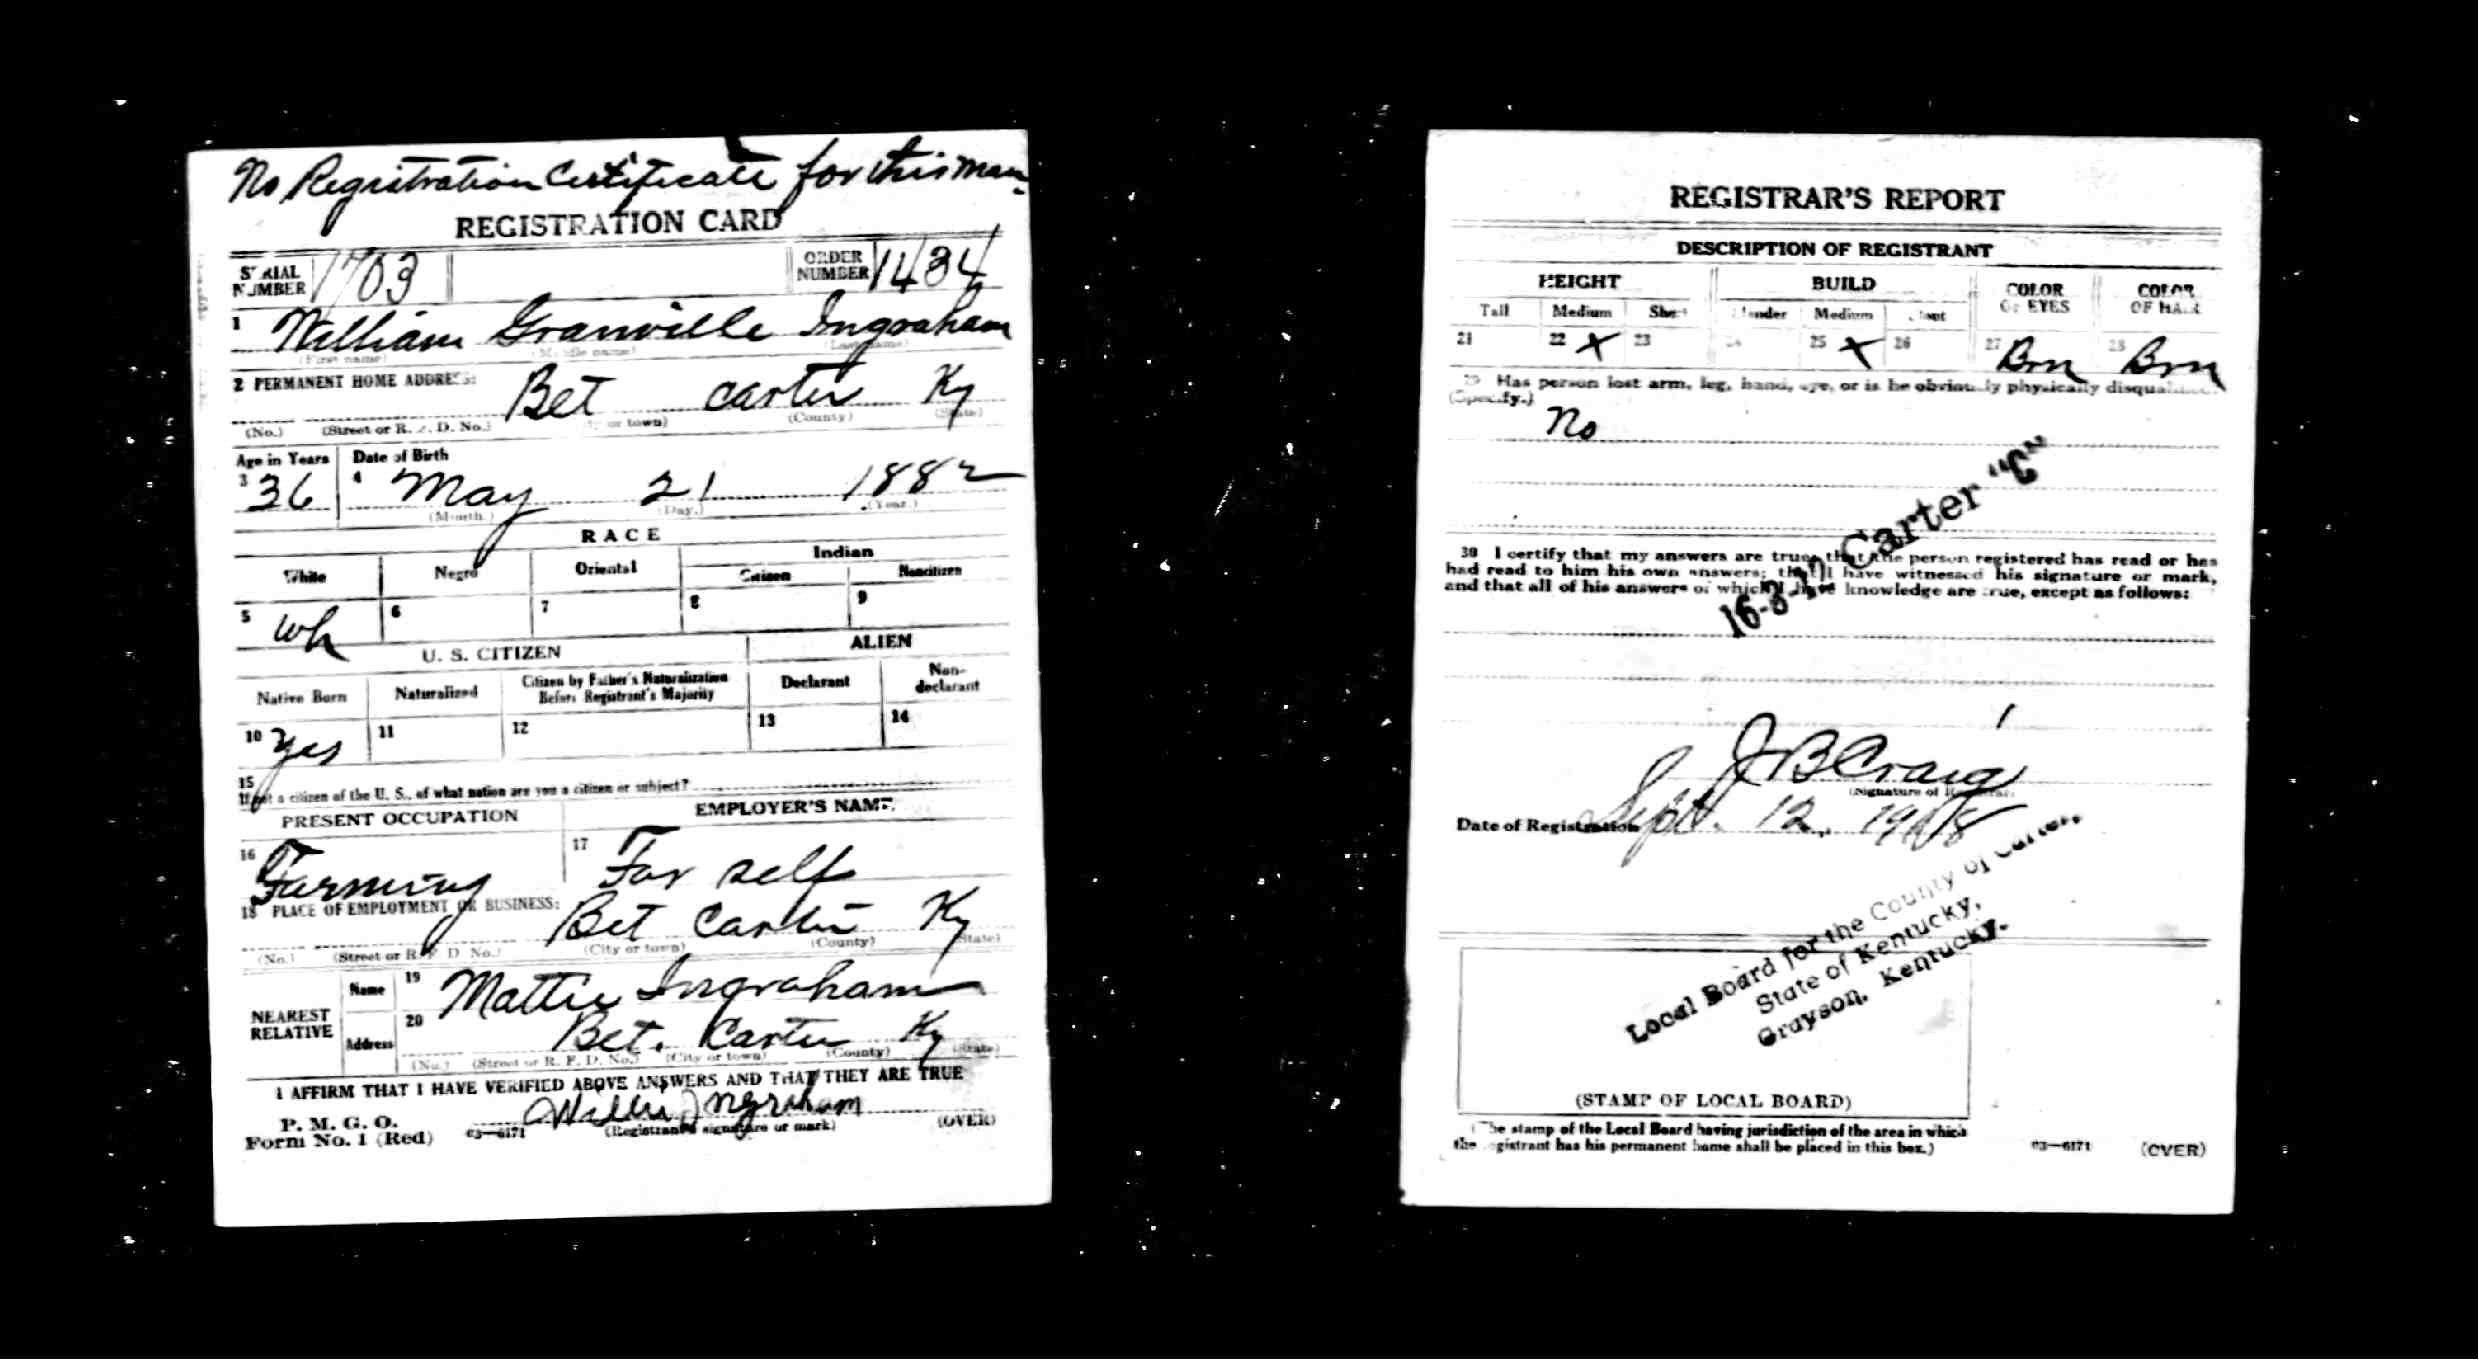 No Registration Certificate for this man.
REGISTRATION CARD
SERIAL NUMBER 1703 ORDER NUMBER 1434
1 William Granville Ingraham
(First name) (Middle name) (Last name)
2 PERMANENT HOME ADDRESS:
Bet Carter Ky
(No.) (Street or R. F. D. No.) (City or town) (County) (State)
Age in Years Date of Birth
3 36 4 May 21 1882
(Month.) (Day.) (Year.)
RACE
White Negro Oriental Indian
Citizen Noncitizen
5 Wh 6 7 8 9
U. S. CITIZEN ALIEN
Native Born Naturalized Citizen by Father's Naturalization Before Registrant's Majority Declarant Non-declarant
10 Yes 11 12 13 14
15
If not a citizen of the U. S., of what nation are you a citizen or subject?
PRESENT OCCUPATION EMPLOYER'S NAME
16 Farming 17 For self
18 PLACE OF EMPLOYMENT OR BUSINESS:
Bet Carter Ky
(No.) (Street or R. F. D. No.) (City or town) (County) (State)
NEAREST RELATIVE Name 19 Mattie Ingraham
Address 20 Bet. Carter Ky
(No.) (Street or R. F. D. No.) (City or town) (County) (State)
I AFFIRM THAT I HAVE VERIFIED ABOVE ANSWERS AND THAT THEY ARE TRUE
P. M. G. O.
Form No. 1 (Red) 03—6171 Willie Ingraham (OVER)
(Registrant's signature or mark)
REGISTRAR'S REPORT
DESCRIPTION OF REGISTRANT
HEIGHT BUILD COLOR OF EYES COLOR OF HAIR
Tall Medium Short Slender Medium Stout
21 22 X 23 24 25 X 26 27 Brn 28 Brn
29 Has person lost arm, leg, hand, eye, or is he obviously physically disqualified?
(Specify.)
No
16-3-17 Carter "C"
30 I certify that my answers are true; that the person registered has read or has
had read to him his own answers; that I have witnessed his signature or mark,
and that all of his answers of which I have knowledge are true, except as follows:
J B Craig
(Signature of Registrar)
Date of Registration Sept. 12, 1918
Local Board for the County of Carter,
State of Kentucky,
Grayson, Kentucky.
(STAMP OF LOCAL BOARD)
(The stamp of the Local Board having jurisdiction of the area in which
the registrant has his permanent home shall be placed in this box.)
03—6171 (OVER)